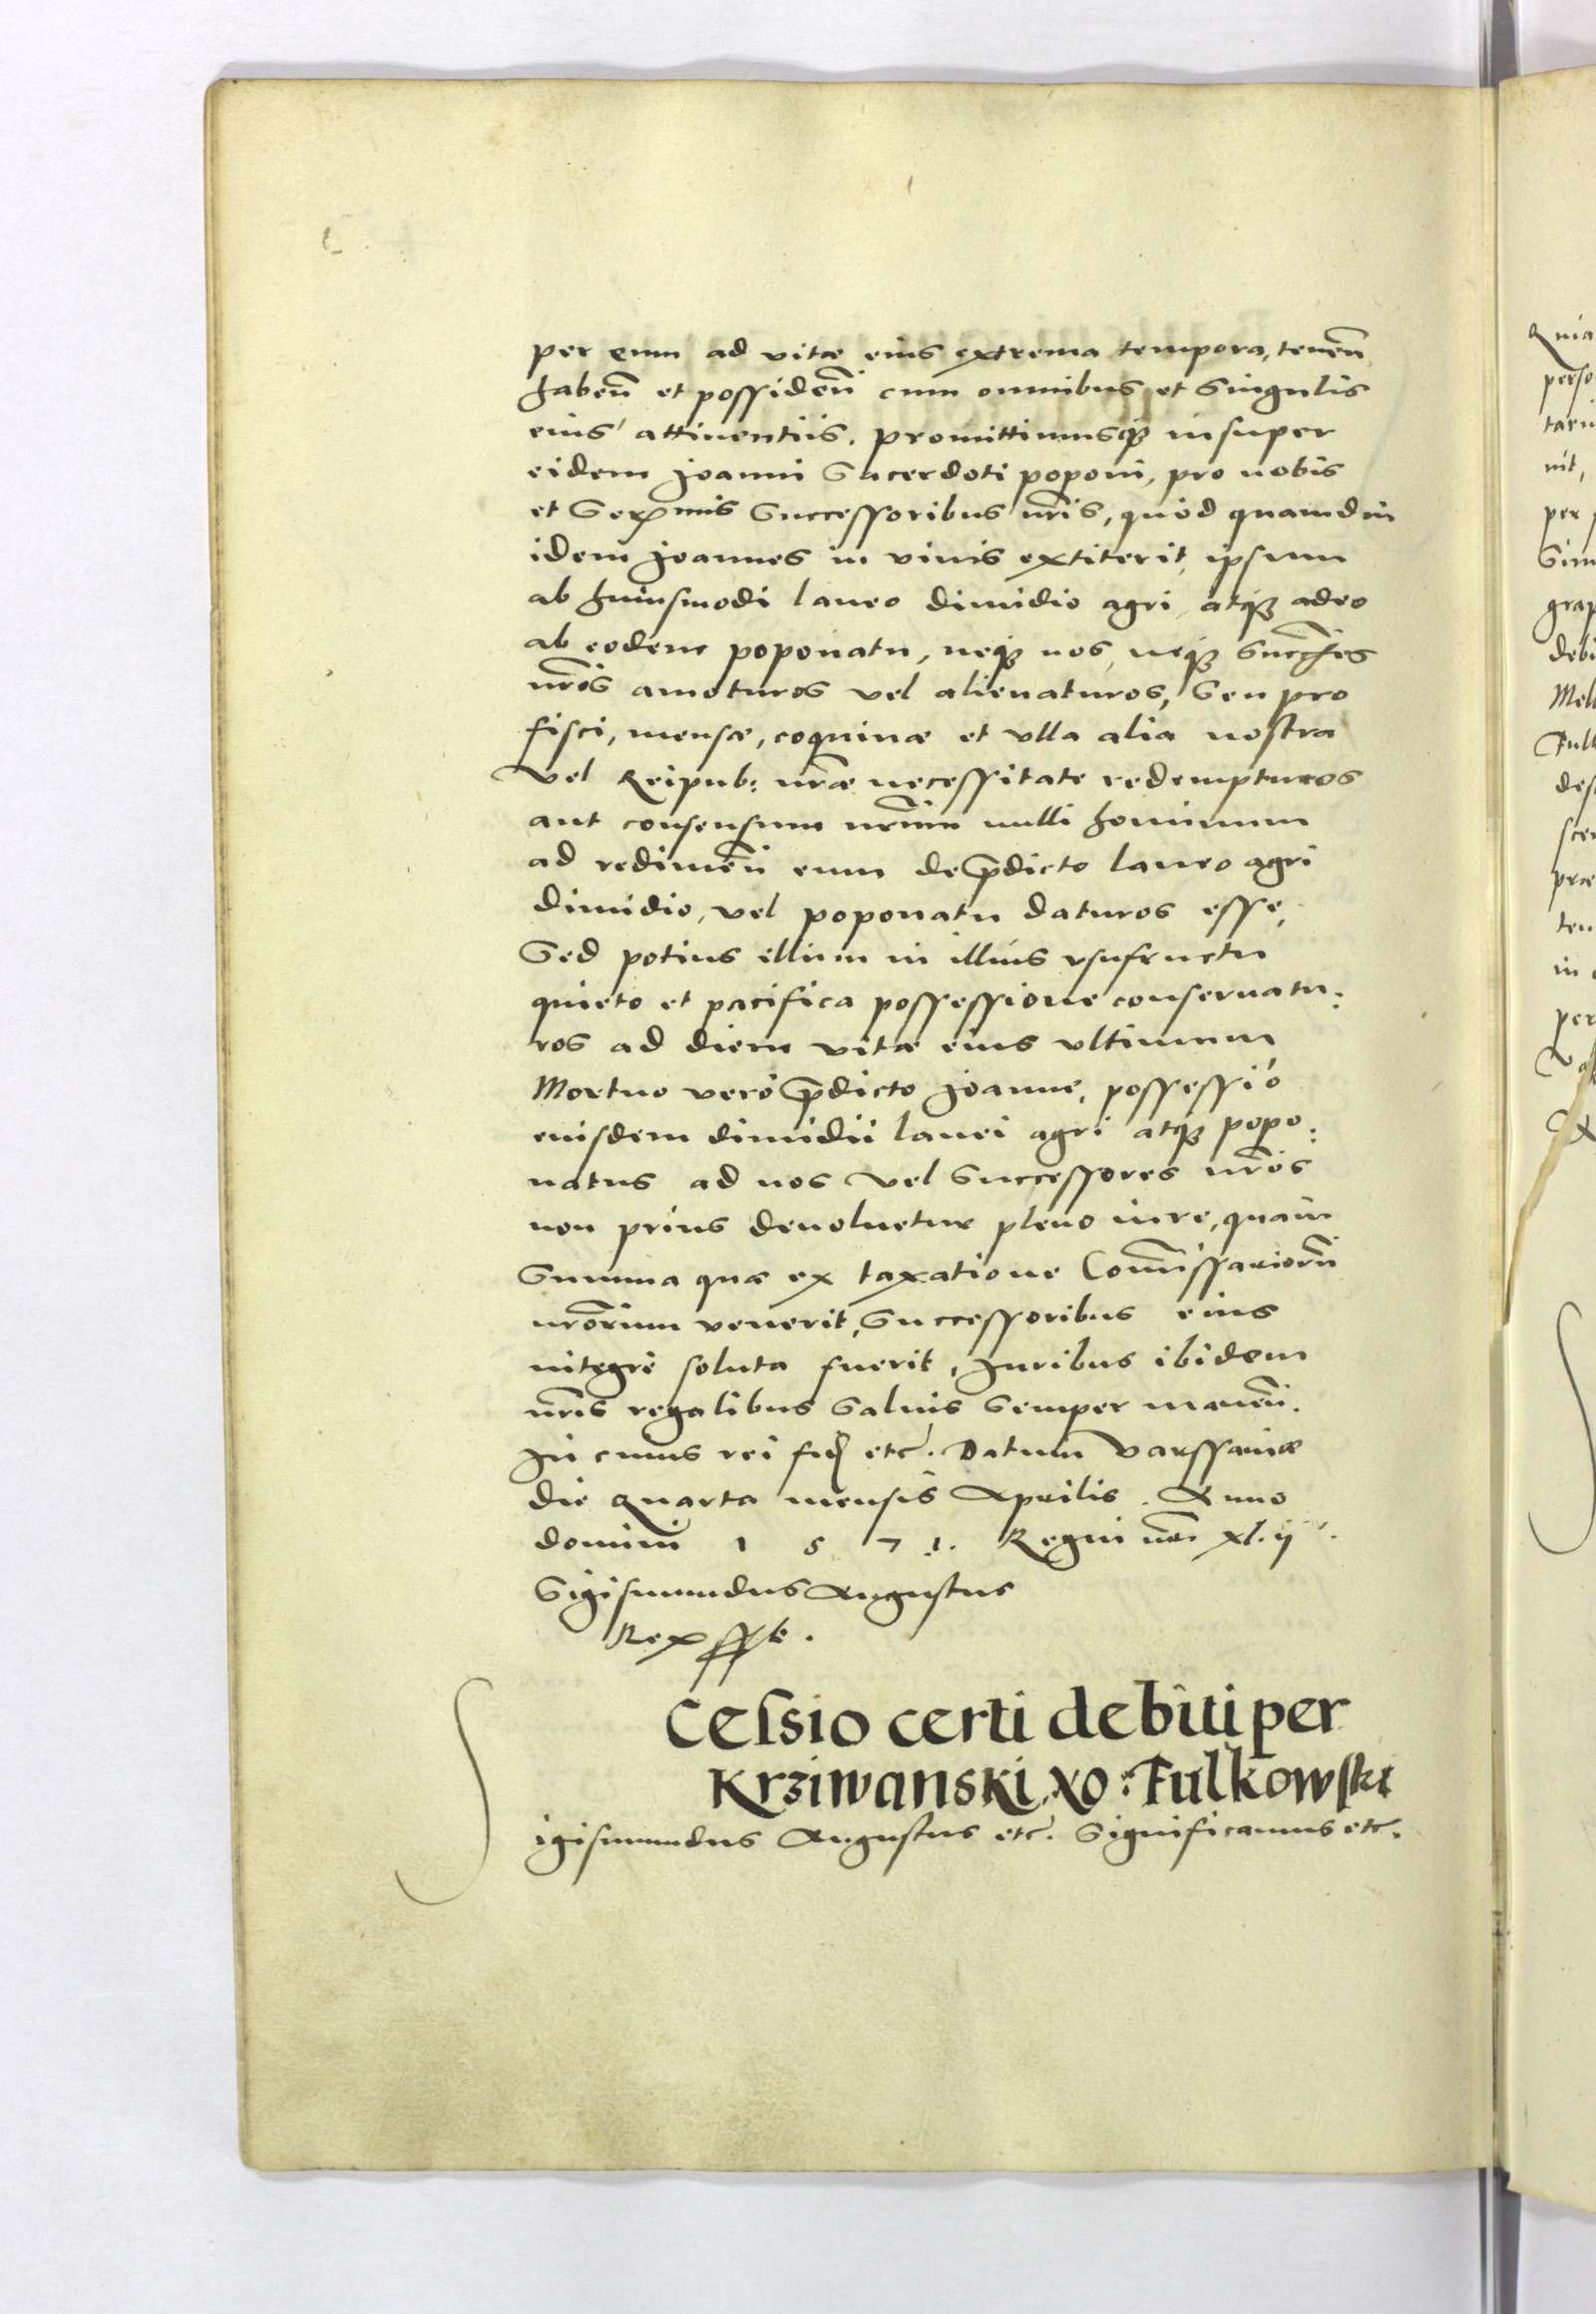 per eum ad vitæ eius extrema tempora, tenen̄
haben̄ et possiden̄ cum omnibus et singulis
eius attinentiis. promittimusq; insuper
eidem Joanni Sacerdoti poponi, pro nobis
et Serᵐⁱˢ Successoribus nr̄is, quòd quamdiu
idem Joannes in viuis extiterit, ipsum
ab huiusmodi laneo dimidio agri atq; adeo
ab eodem poponatu, neq; nos, neq; Succ̄es
nr̄os amoturos vel alienaturos, Seu pro
fisci, mensæ, coquinæ et vlla alia nostra
vel Reipub: nr̄æ necessitate redempturos
aut consensum nr̄um nulli hominum
ad redimen̄ eum de p̄dicto laneo agri
dimidio, vel poponatu daturos esse,
Sed potius illum in illius vsufructu
quieto et pacifica possessione conseruatu:
ros ad diem vitæ eius vltimum,
Mortuo verò p̄dicto Joanne, possessio
eiusdem dimidii lanei agri atq; popo:
natus ad nos vel Successores nr̄os
non prius deuoluetur pleno iure, quàm
Summa quæ ex taxatione Com̄issariorū
nr̄orum venerit, Successoribus eius
integrè soluta fuerit, Juribus ibidem
nr̄is regalibus Saluis Semper manen̄.
In cuius rei fid etc. Datum Varssauiæ
die quarta mensis Aprilis. Anno
domini 1 5 7 1. Regni nr̄i xl. ij
Sigismundus Augustus
Rex sst.
Cessio certi debiti per
Krziwanski, No: Fulkowski
Sigismundus Augustus etc. Significamus etc.
Quia
perso
nit,
per
Sim
grap
debi
Mel
Fulk
des
scen
præ
ten
in
per